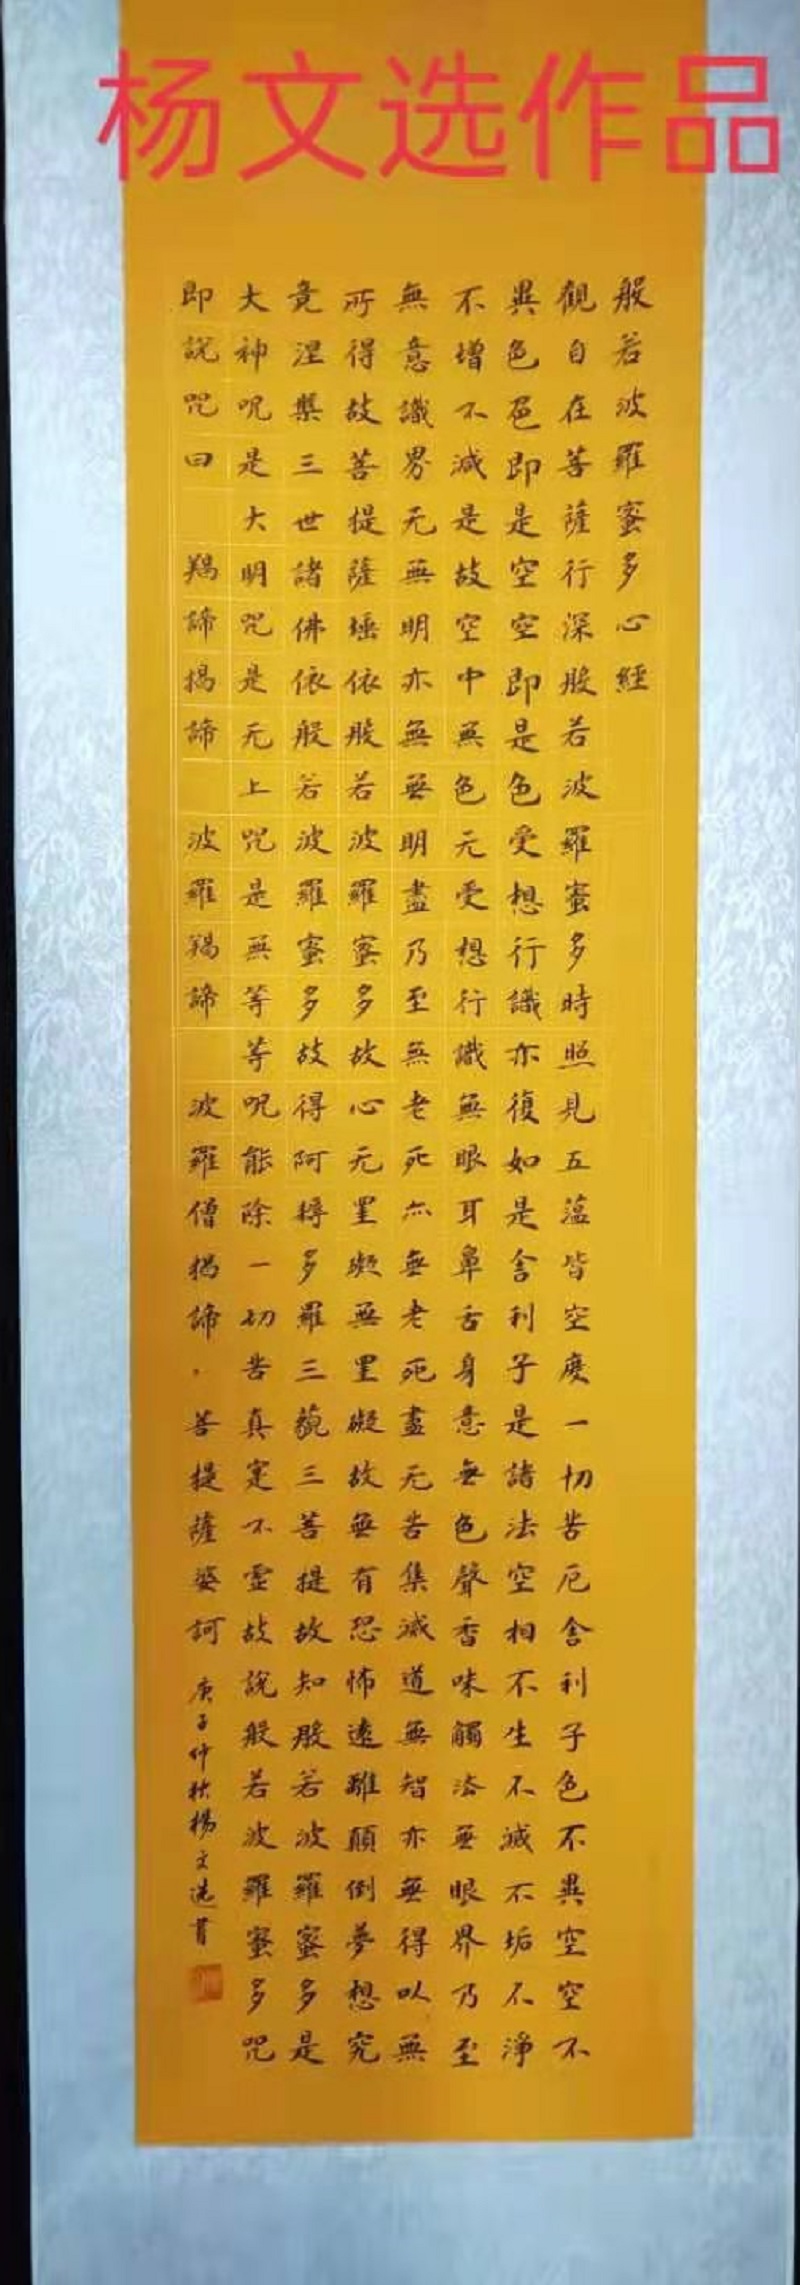 杨文选作品
般若波羅蜜多心經
觀自在菩薩行深般若波羅蜜多時照見五蕴皆空度一切苦厄舍利子色不異空空不
異色色即是空空即是色受想行識亦復如是舍利子是諸法空相不生不滅不垢不淨
不增不減是故空中無色无受想行識無眼耳鼻舌身意無色聲香味觸法無眼界乃至
無意識界无無明亦無無明盡乃至無老死亦無老死盡无苦集滅道無智亦無得以無
所得故菩提薩埵依般若波羅蜜多故心无罣礙無罣礙故無有恐怖遠離顛倒夢想究
竟涅槃三世諸佛依般若波羅蜜多故得阿耨多羅三藐三菩提故知般若波羅蜜多是
大神呪是大明咒是无上咒是無等等呪能除一切苦真實不虛故說般若波羅蜜多咒
即說咒曰 羯諦揭諦 波羅羯諦 波羅僧揭諦·菩提薩婆訶 庚子仲秋楊文选書